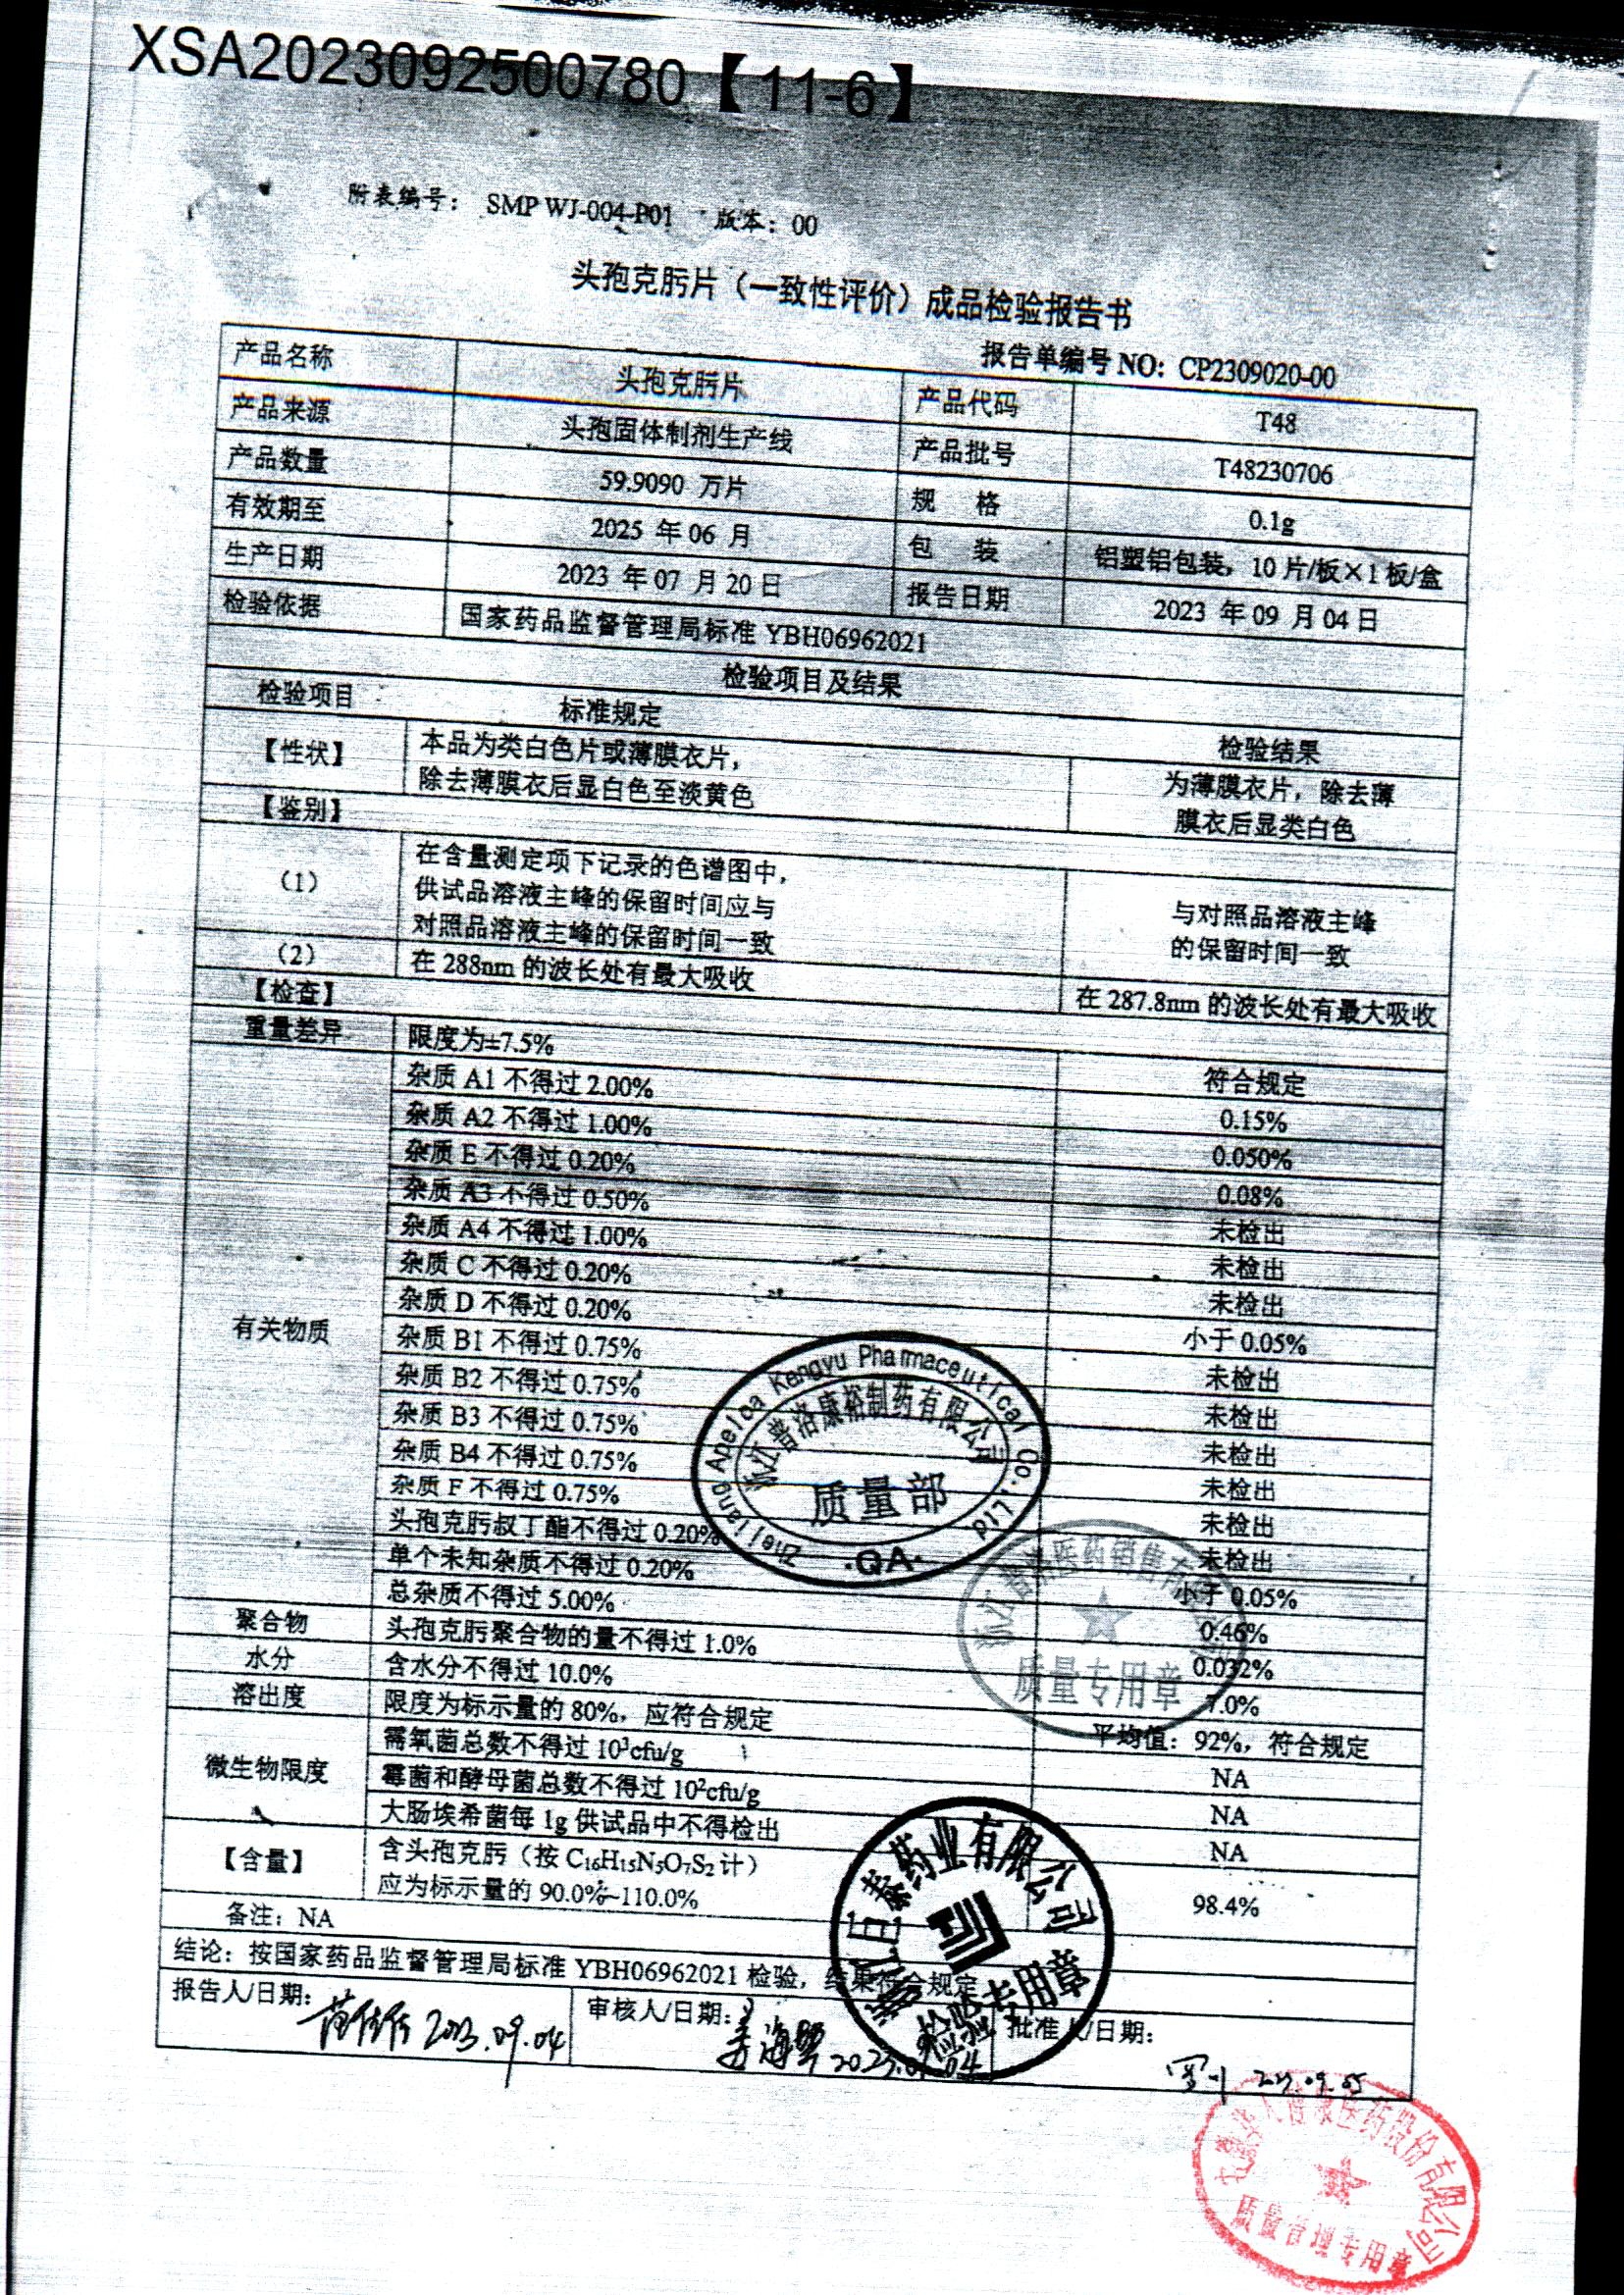 XSA2023092500780【11-6】
附表编号： SMP WJ-004-P01 版本：00
头孢克肟片（一致性评价）成品检验报告书
报告单编号 NO: CP2309020-00
产品名称 头孢克肟片 产品代码 T48
产品来源 头孢固体制剂生产线 产品批号 T48230706
产品数量 59.9090 万片 规 格 0.1g
有效期至 2025 年 06 月 包 装 铝塑铝包装，10 片/板×1 板/盒
生产日期 2023 年 07 月 20 日 报告日期 2023 年 09 月 04 日
检验依据 国家药品监督管理局标准 YBH06962021
检验项目及结果
检验项目 标准规定 检验结果
【性状】 本品为类白色片或薄膜衣片， 为薄膜衣片，除去薄
除去薄膜衣后显白色至淡黄色 膜衣后显类白色
【鉴别】
（1） 在含量测定项下记录的色谱图中，
供试品溶液主峰的保留时间应与 与对照品溶液主峰
对照品溶液主峰的保留时间一致 的保留时间一致
（2） 在 288nm 的波长处有最大吸收 在 287.8nm 的波长处有最大吸收
【检查】
重量差异 限度为±7.5% 符合规定
有关物质 杂质 A1 不得过 2.00% 0.15%
杂质 A2 不得过 1.00% 0.050%
杂质 E 不得过 0.20% 0.08%
杂质 A3 不得过 0.50% 未检出
杂质 A4 不得过 1.00% 未检出
杂质 C 不得过 0.20% 未检出
杂质 D 不得过 0.20% 小于 0.05%
杂质 B1 不得过 0.75% 未检出
杂质 B2 不得过 0.75% 未检出
杂质 B3 不得过 0.75% 未检出
杂质 B4 不得过 0.75% 未检出
杂质 F 不得过 0.75% 未检出
头孢克肟叔丁酯不得过 0.20% 未检出
单个未知杂质不得过 0.20% 小于 0.05%
总杂质不得过 5.00% 0.46%
聚合物 头孢克肟聚合物的量不得过 1.0% 0.032%
水分 含水分不得过 10.0% 7.0%
溶出度 限度为标示量的 80%，应符合规定 平均值：92%，符合规定
微生物限度 需氧菌总数不得过 10³cfu/g NA
霉菌和酵母菌总数不得过 10²cfu/g NA
大肠埃希菌每 1g 供试品中不得检出 NA
【含量】 含头孢克肟（按 C₁₆H₁₅N₅O₇S₂ 计）
应为标示量的 90.0%~110.0% 98.4%
备注：NA
结论：按国家药品监督管理局标准 YBH06962021 检验，结果符合规定
报告人/日期： 2023.09.04 审核人/日期： 批准人/日期：
Zhejiang Apeloa Kangyu Pharmaceutical Co., Ltd
浙江普洛康裕制药有限公司
质量部
·QA·
质量专用章
药业有限公司
检验专用章